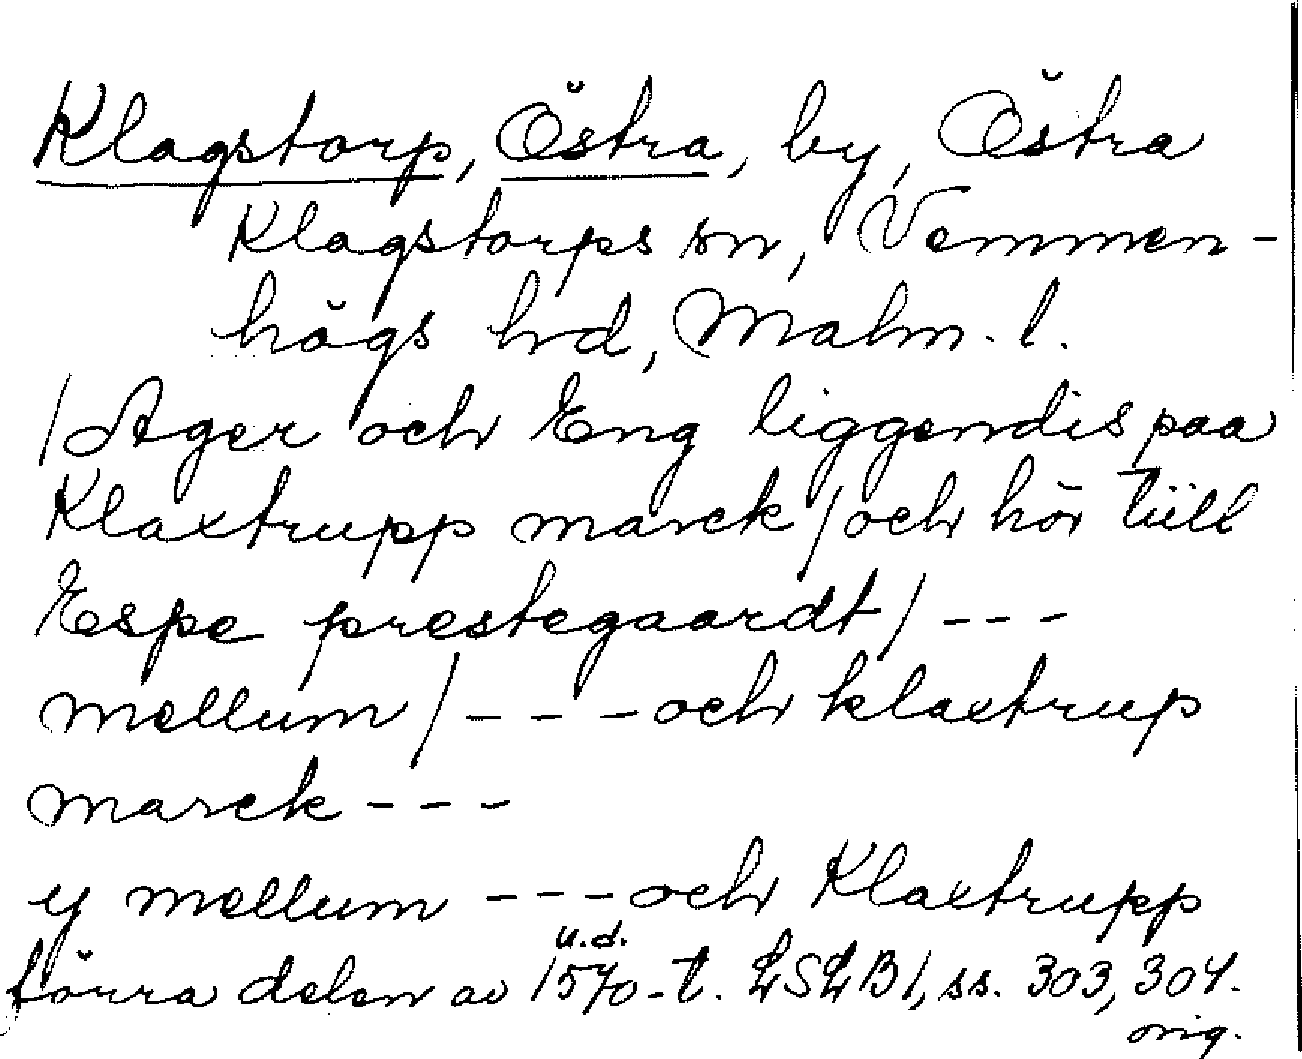 Klagstorp, Östra, by, Östra
Klagstorps sn, Vemmen-
högs hd, Malm. l.
/Ager och Eng liggendis paa
Klaxtrupp marck / och hör tiill
Espe prestegaardt / ---
mellum / --- och klaxtrup
marck ---
y mellum --- och Klaxtrupp
u.d.
förra delen av 1570-t. LSLB 1, ss. 303, 304.
orig.